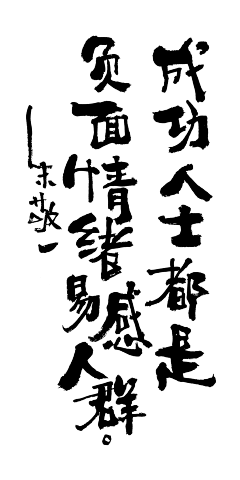 成功人士都是
负面情绪易感人群。
——朱敬一